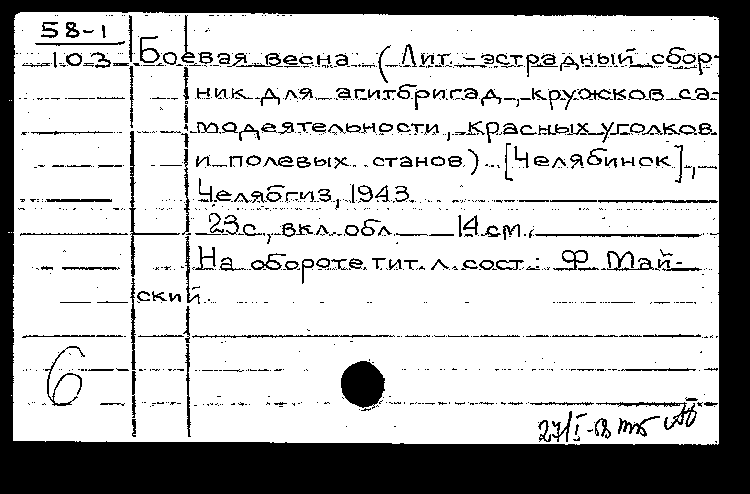 58-1
103 Боевая весна (Лит.-эстрадный сбор-
ник для агитбригад, кружков са-
модеятельности, красных уголков
и полевых станов). [Челябинск],
Челябгиз, 1943.
23 с., вкл. обл. 14 см.
На обороте тит. л. сост.: Ф. Май-
ский.
6
27/I-